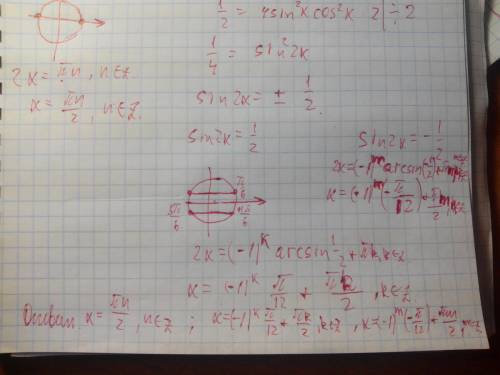 1/2 = 4sin²x cos²x 2 | ÷ 2
1/4 = sin²2x
2x = πn, n∈Z
x = πn/2, n∈Z.
sin2x = ± 1/2.
sin2x = 1/2
sin2x = -1/2
2x = (-1)^m arcsin(-1/2) + πm, m∈Z
x = (-1)^m (-π/12) + πm/2, m∈Z
π/6
5π/6
2x = (-1)^k arcsin 1/2 + πk, k∈Z
x = (-1)^k π/12 + πk/2, k∈Z
Ответ: x = πn/2, n∈Z ; x = (-1)^k π/12 + πk/2, k∈Z, x = (-1)^m (-π/12) + πm/2, m∈Z